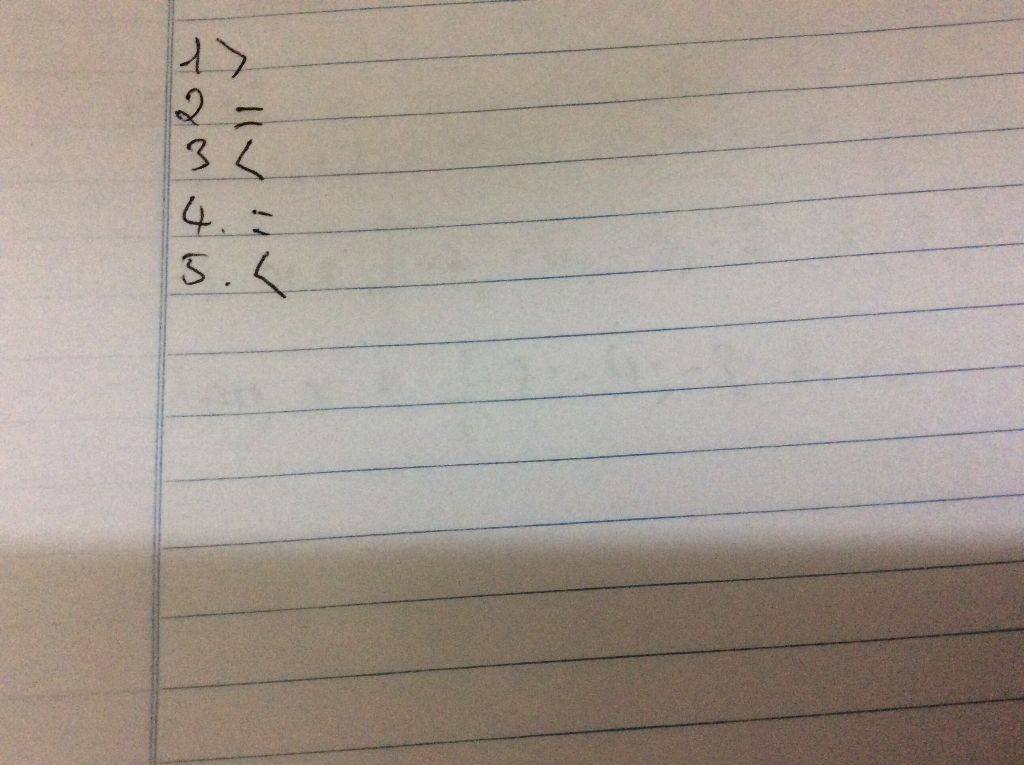 1 >
2 =
3 <
4. =
5. <